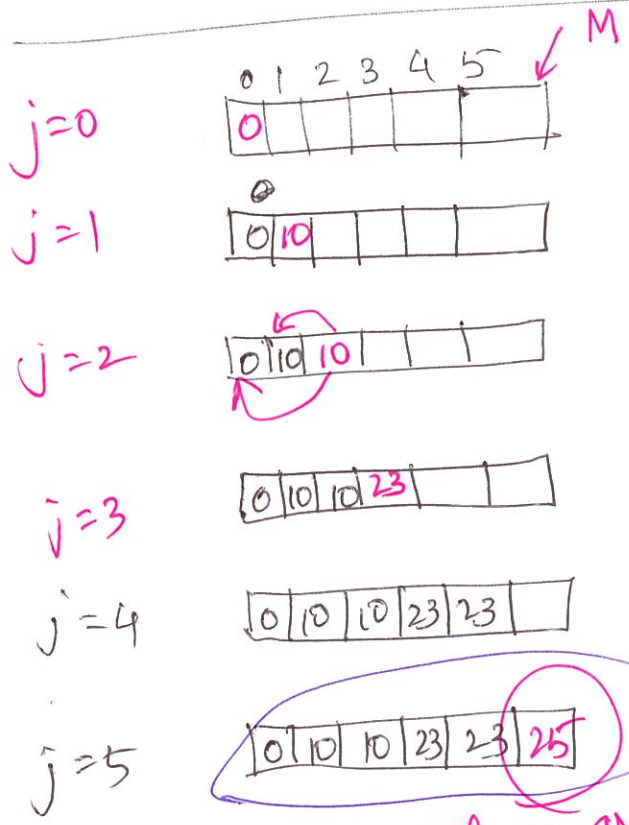 M
0 1 2 3 4 5
j=0 0
0
j=1 0 10
j=2 0 10 10
j=3 0 10 10 23
j=4 0 10 10 23 23
j=5 0 10 10 23 23 25